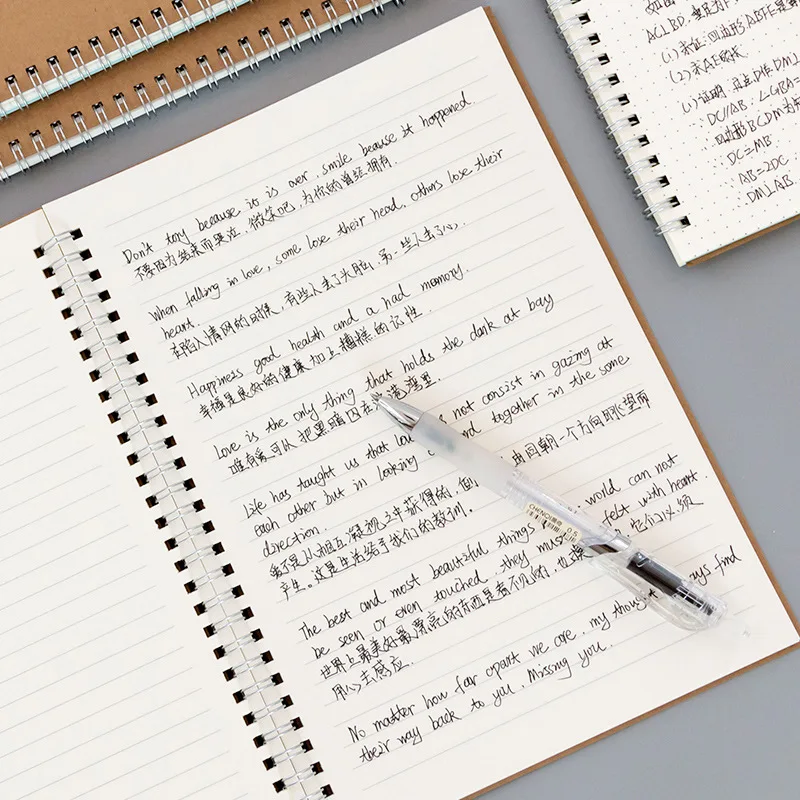 Don't because it is over, smile beause it happened.
不要因为结束而哭泣. 微笑吧, 为你的曾经拥有.
When falling in love, some lose their head, others lose their
heart.
在陷入情网的时候, 有些人丢了头脑, 另一些人丢了心.
Happiness good health and a had memory.
幸福是良好的健康加上糟糕的记性.
Love is the only thing that holds the dank at bay
唯有爱可从把黑暗囚在港湾里.
Life has taught us that not consist in gazing at
each other but in looking together in the same
direction.
爱不是从相互凝视之中获得的, 由同朝一个方向眺望而
产生. 这是生活给予我们的教训.
The best and most beautiful things world can not
be seen or even touched. they must felt with heart.
世界上最美好最漂亮的东西是看不见的, 也 它们必须
用心去感应.
No matter how far apart we are, my find
their way back to you. Missing you.
0.5
如图
AC⊥BD, 垂足为
(1) 求证: 四边形ABFE是
(2) 求AE的长
(1) 证明: 过点D作DM⊥
DC//AB, ∠CBA=
四边形BCDM为
DC=MB
AB=2DC
DM⊥AB